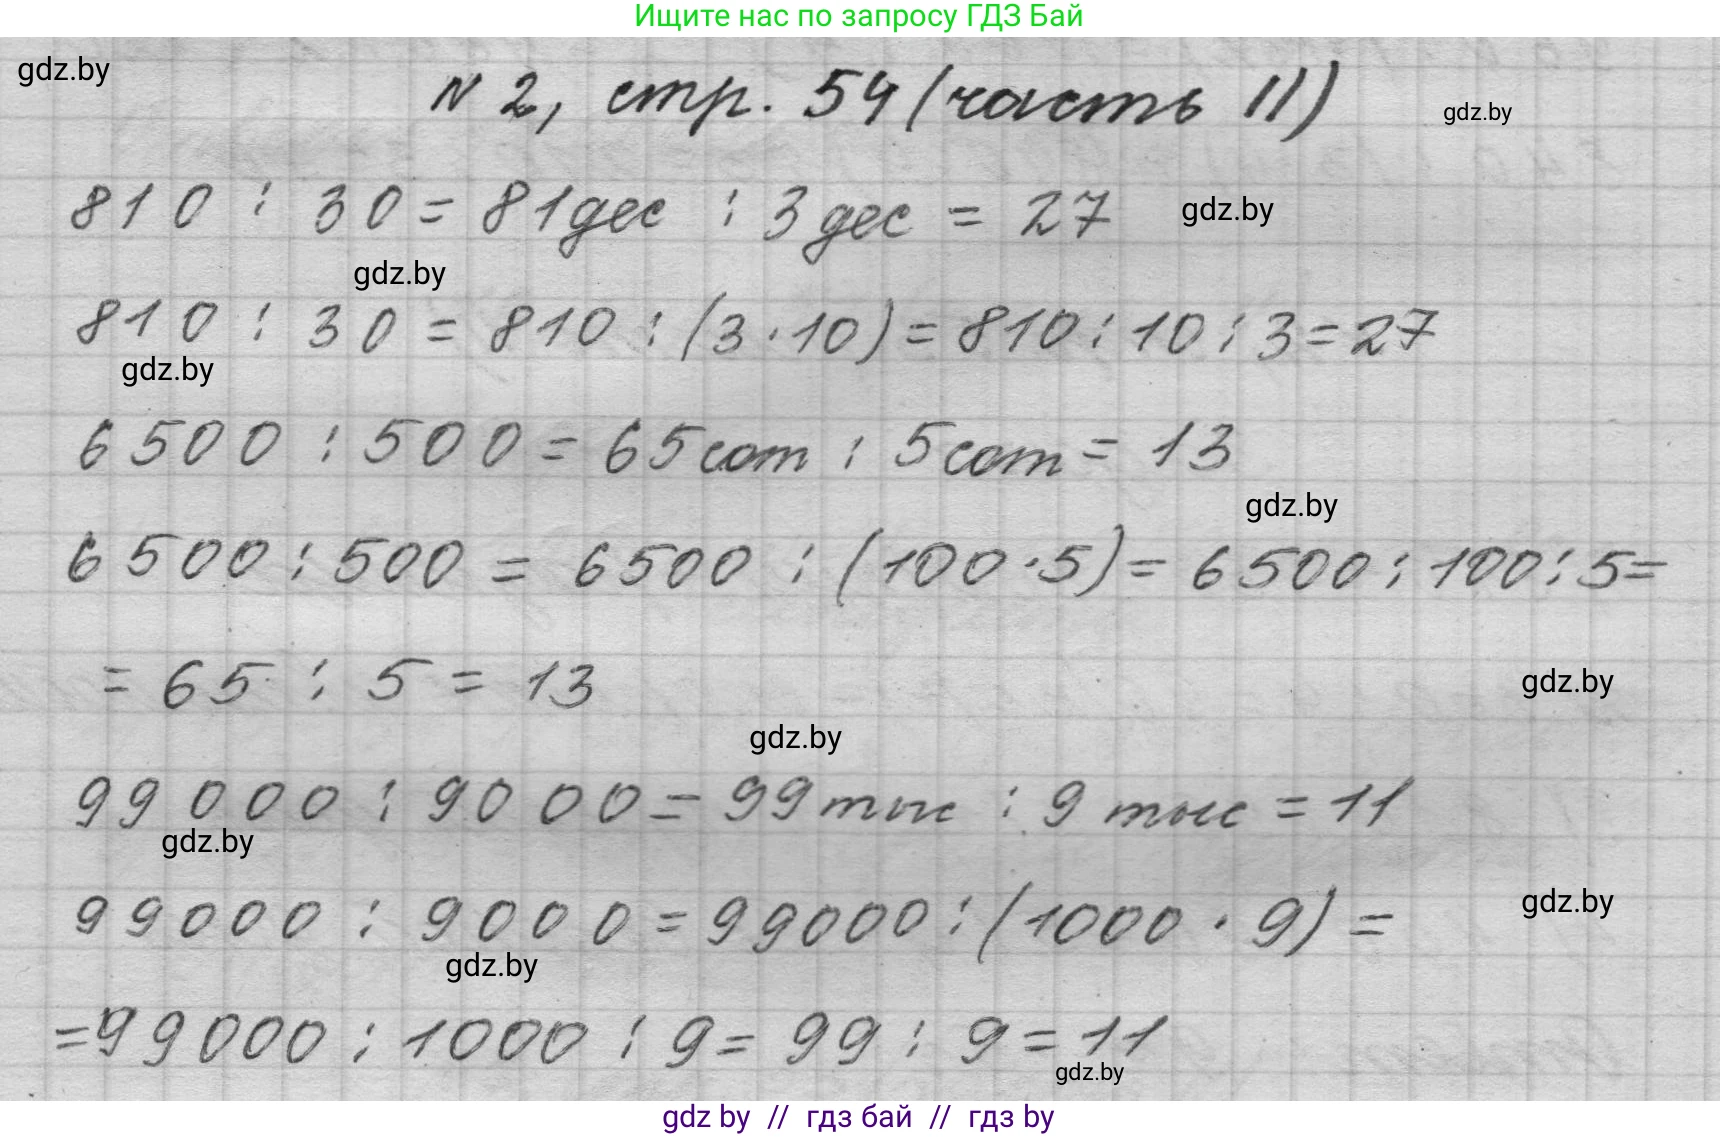 Ищите нас по запросу ГДЗ Бай
gdz.by
№ 2, стр. 54 (часть II)
gdz.by
810 : 30 = 81 дес : 3 дес = 27
gdz.by
gdz.by
810 : 30 = 810 : (3 · 10) = 810 : 10 : 3 = 27
gdz.by
6500 : 500 = 65 сот : 5 сот = 13
gdz.by
6500 : 500 = 6500 : (100 · 5) = 6500 : 100 : 5 =
= 65 : 5 = 13
gdz.by
gdz.by
99000 : 9000 = 99 тыс : 9 тыс = 11
gdz.by
99000 : 9000 = 99000 : (1000 · 9) =
gdz.by
gdz.by
= 99000 : 1000 : 9 = 99 : 9 = 11
gdz.by
gdz by // гдз бай // гдз by